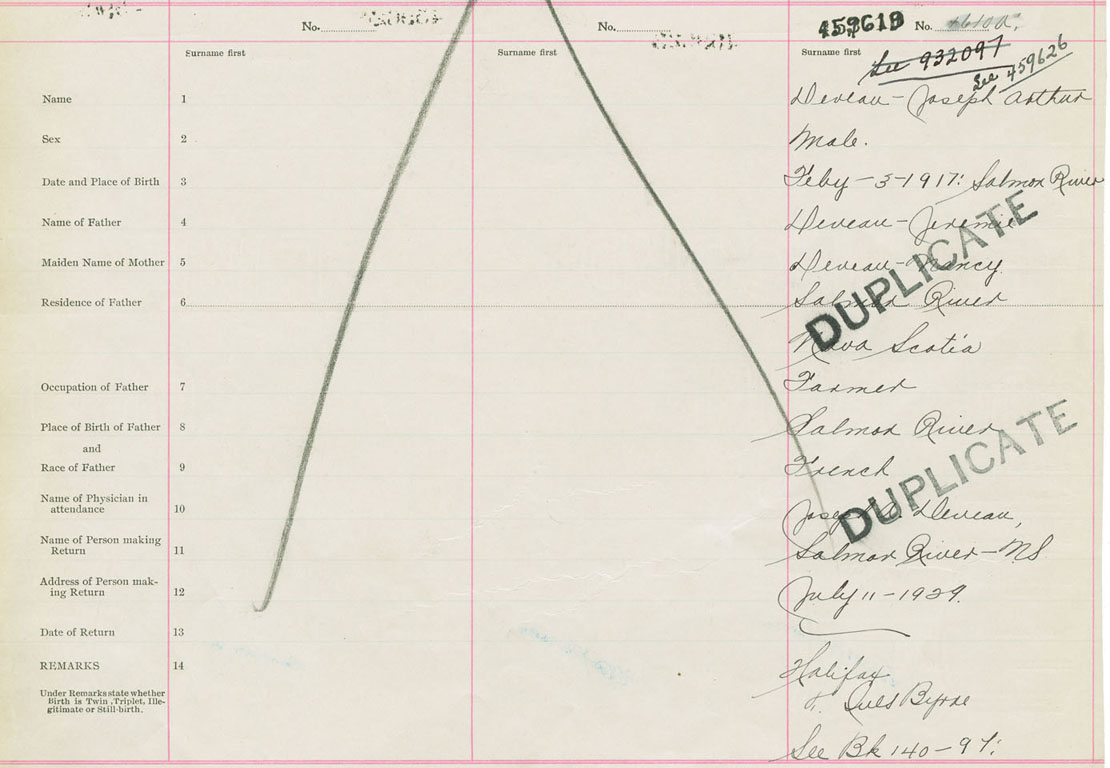 No.
No.
459619 No.
See 932097
See 459626
Surname first
Surname first
Surname first
Name 1 Deveau - Joseph Arthur
Sex 2 Male.
Date and Place of Birth 3 Feby - 3-1917: Salmon River
Name of Father 4 Deveau - Jeremie
Maiden Name of Mother 5 Deveau - Nancy
Residence of Father 6 Salmon River
Nova Scotia
DUPLICATE
Occupation of Father 7 Farmer
Place of Birth of Father 8 Salmon River
and
Race of Father 9 French
Name of Physician in
attendance 10 Joseph A. Deveau,
DUPLICATE
Name of Person making
Return 11 Salmon River - NS
Address of Person mak-
ing Return 12 July 11 - 1929.
Date of Return 13
REMARKS 14 Halifax
Under Remarks state whether
Birth is Twin, Triplet, Ille-
gitimate or Still-birth.
Byrne
See Bk 140 - 97: